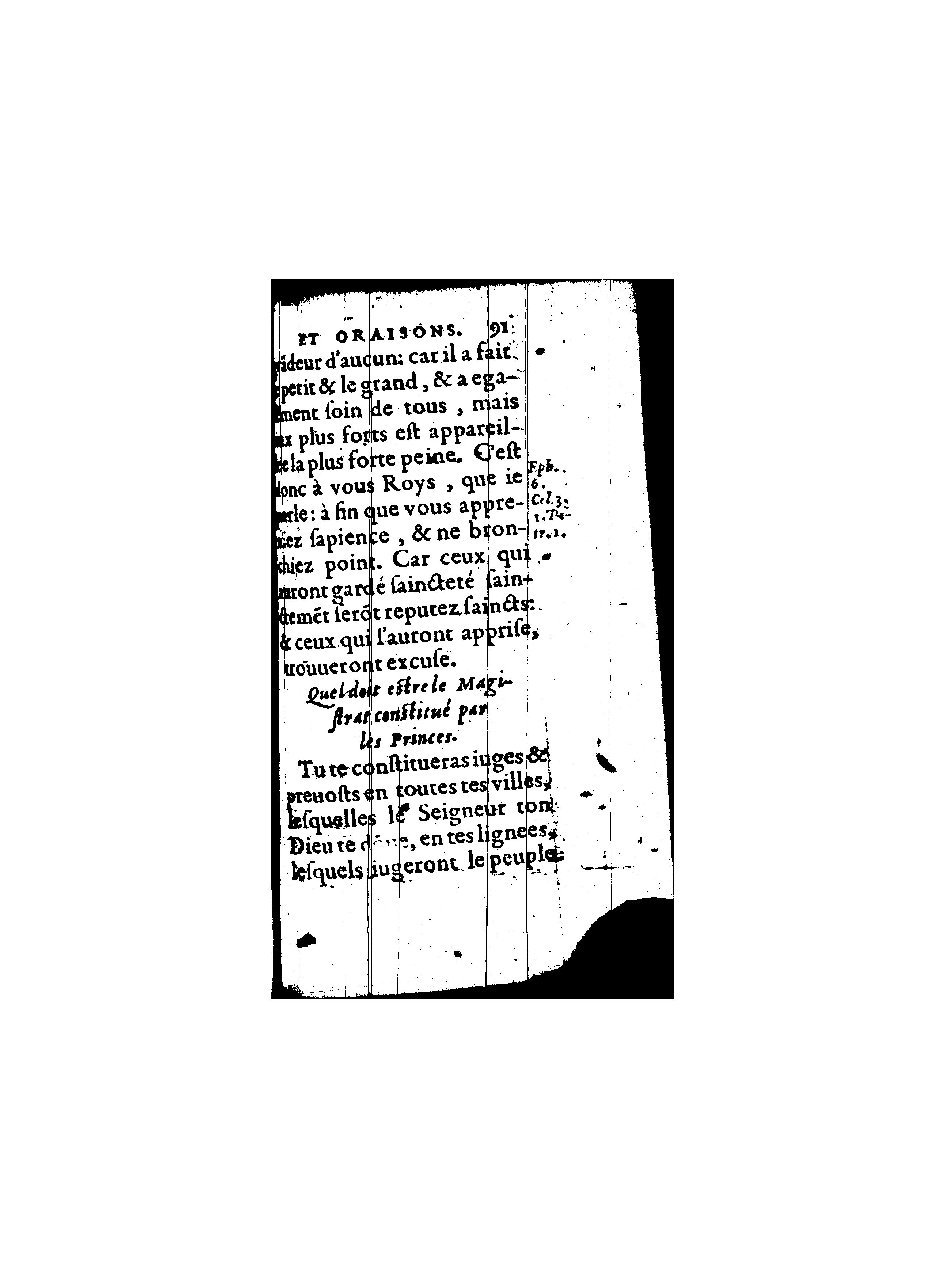 ET ORAISONS. 91
d'aucun: car il a fait
petit & le grand, & a ega-
ment ſoin de tous, mais
plus forts eſt appareil-
la plus forte peine. C'eſt
donc à vous Roys, que ie
à fin que vous appre-
ſapience, & ne bron-
chiez point. Car ceux qui
gardé ſaincteté ſain-
ctemẽt ſerõt reputez ſaincts:
& ceux qui l'auront appriſe,
trouueront excuſe.
Quel doit eſtre le Magi-
ſtrat conſtitué par
les Princes.
Tu te conſtitueras iuges &
preuoſts en toutes tes villes,
leſquelles le Seigneur ton
Dieu te en tes lignees,
leſquels iugeront le peuple
Eph.
6.
Col. 3.